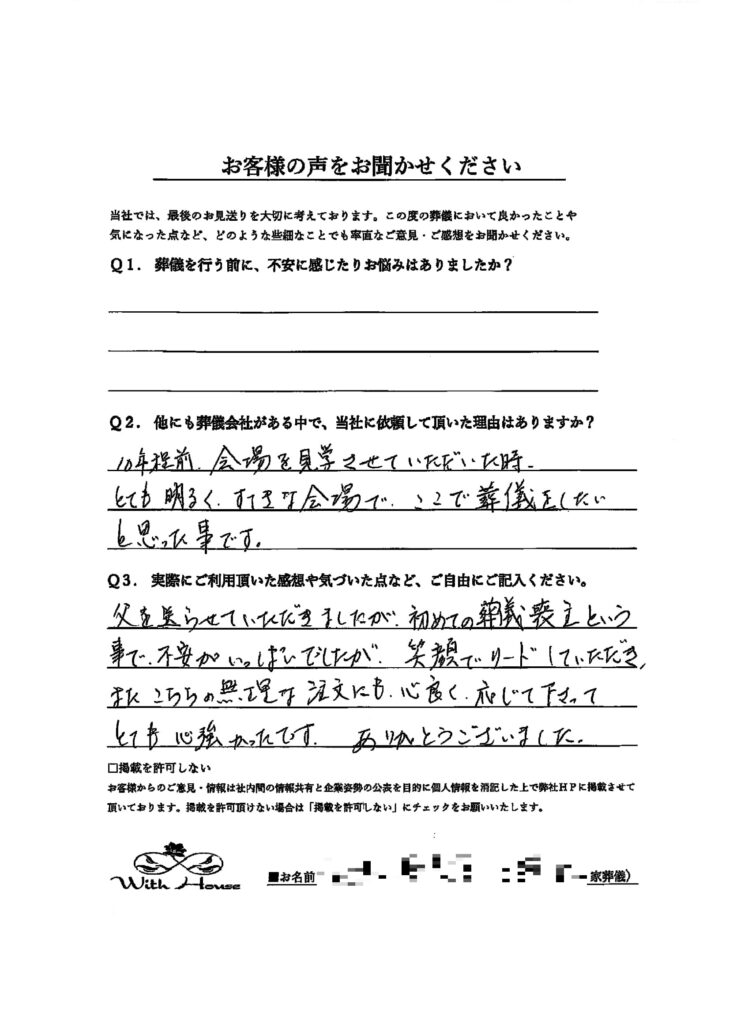 お客様の声をお聞かせください
当社では、最後のお見送りを大切に考えております。この度の葬儀において良かったことや
気になった点など、どのような些細なことでも率直なご意見・ご感想をお聞かせください。
Q1. 葬儀を行う前に、不安に感じたりお悩みはありましたか？
Q2. 他にも葬儀会社がある中で、当社に依頼して頂いた理由はありますか？
10年程前、会場を見学させていただいた時、
とても明るく、すてきな会場で、ここで葬儀をしたい
と思った事です。
Q3. 実際にご利用頂いた感想や気づいた点など、ご自由にご記入ください。
父を送らせていただきましたが、初めての葬義喪主という
事で、不安がいっぱいでしたが、笑顔でリードしていただき、
また こちらの無理な注文にも、心良く、応じて下さって
とても心強かったです。 ありがとうございました。
□掲載を許可しない
お客様からのご意見・情報は社内間の情報共有と企業姿勢の公表を目的に個人情報を消記した上で弊社HPに掲載させて
頂いております。掲載を許可頂けない場合は「掲載を許可しない」にチェックをお願いいたします。
With House
■お名前 家葬儀）